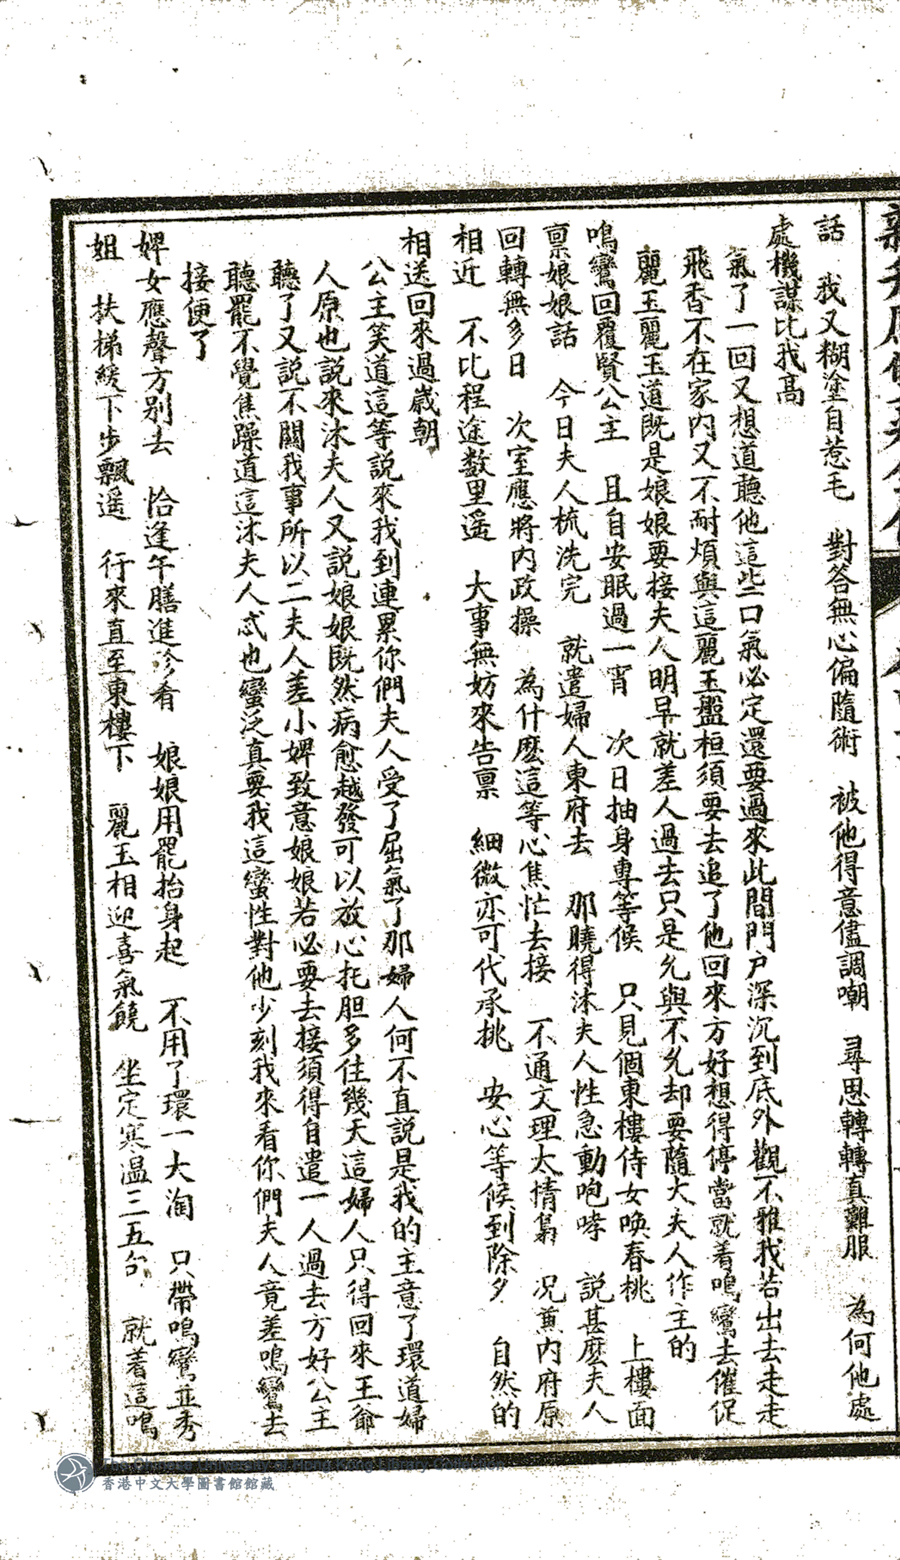 話　我又糊塗自惹毛　對答無心偏隨術　被他得意儘調嘲　尋思轉轉真難服　為何他處
處機謀比我高
氣了一回又想道聽他這些口氣必定還要過來此間門戶深沉到底外觀不雅我若出去走走
飛香不在家內又不耐煩與這麗玉盤桓須要去追了他回來方好想得停當就着鳴鸞去催促
麗玉麗玉道既是娘娘要接夫人明早就差人過去只是允與不允却要隨大夫人作主的
鳴鸞回覆賢公主　且自安眠過一宵　次日抽身專等候　只見個東樓侍女喚春桃　上樓面
稟娘娘話　今日夫人梳洗完　就遣婦人東府去　那曉得沐夫人性急動咆哮　說甚麼夫人
回轉無多日　次室應將內政操　為什麼這等心焦忙去接　不通文理太情梟　况兼內府原
相近　不比程途数里遥　大事無妨來告稟　細微亦可代承挑　安心等候到除夕　自然的
相送回來過歲朝
公主笑道這等說來我到連累你們夫人受了屈氣了那婦人何不直說是我的主意了環道婦
人原也說來沐夫人又說娘娘既然病愈越發可以放心托胆多住幾天這婦人只得回來王爺
聽了又說不關我事所以二夫人差小婢致意娘娘若必要去接須得自遣一人過去方好公主
聽罷不覺焦躁道這沐夫人忒也蠻泛真要我這蠻性對他少刻我來看你們夫人竟差鳴鸞去
接便了
婢女應聲方別去　恰逢午膳進珍肴　娘娘用罷抬身起　不用了環一大淘　只帶鳴鸞並秀
姐　扶梯緩下步飄遥　行來直至東樓下　麗玉相迎喜氣饒　坐定寒温三五句　就着這鳴
香港中文大學圖書館館藏